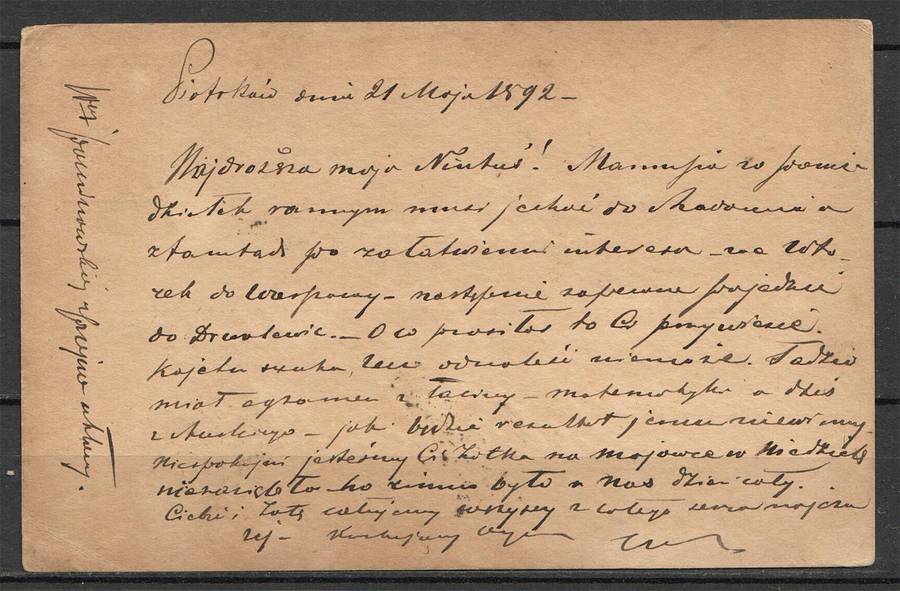 Piotrków dnia 21 Maja 1892 –
Najdroższa moja Niutuś! Mamusia w ponie-
działek rannym musi jechać do Radomia a
ztamtąd po załatwieniu interesa – we Wto-
rek do Warszawy – następnie zapewne pojedzie
do – O co prosiłaś to Ci przywiezie.
Kajetu szuka, lecz odnaleść niemoże. Tadzio
miał egzamen z łaciny – matematyki a dziś
z – jak będzie resultat jemu niewiemy
Niespokojni jesteśmy Cię Zotka na majówce w Niedzielę
niezazięбła bo zimno było u nas dzień cały.
Ciebie i Zotę całujemy wszyscy z całego serca najczu
lej – Kochający